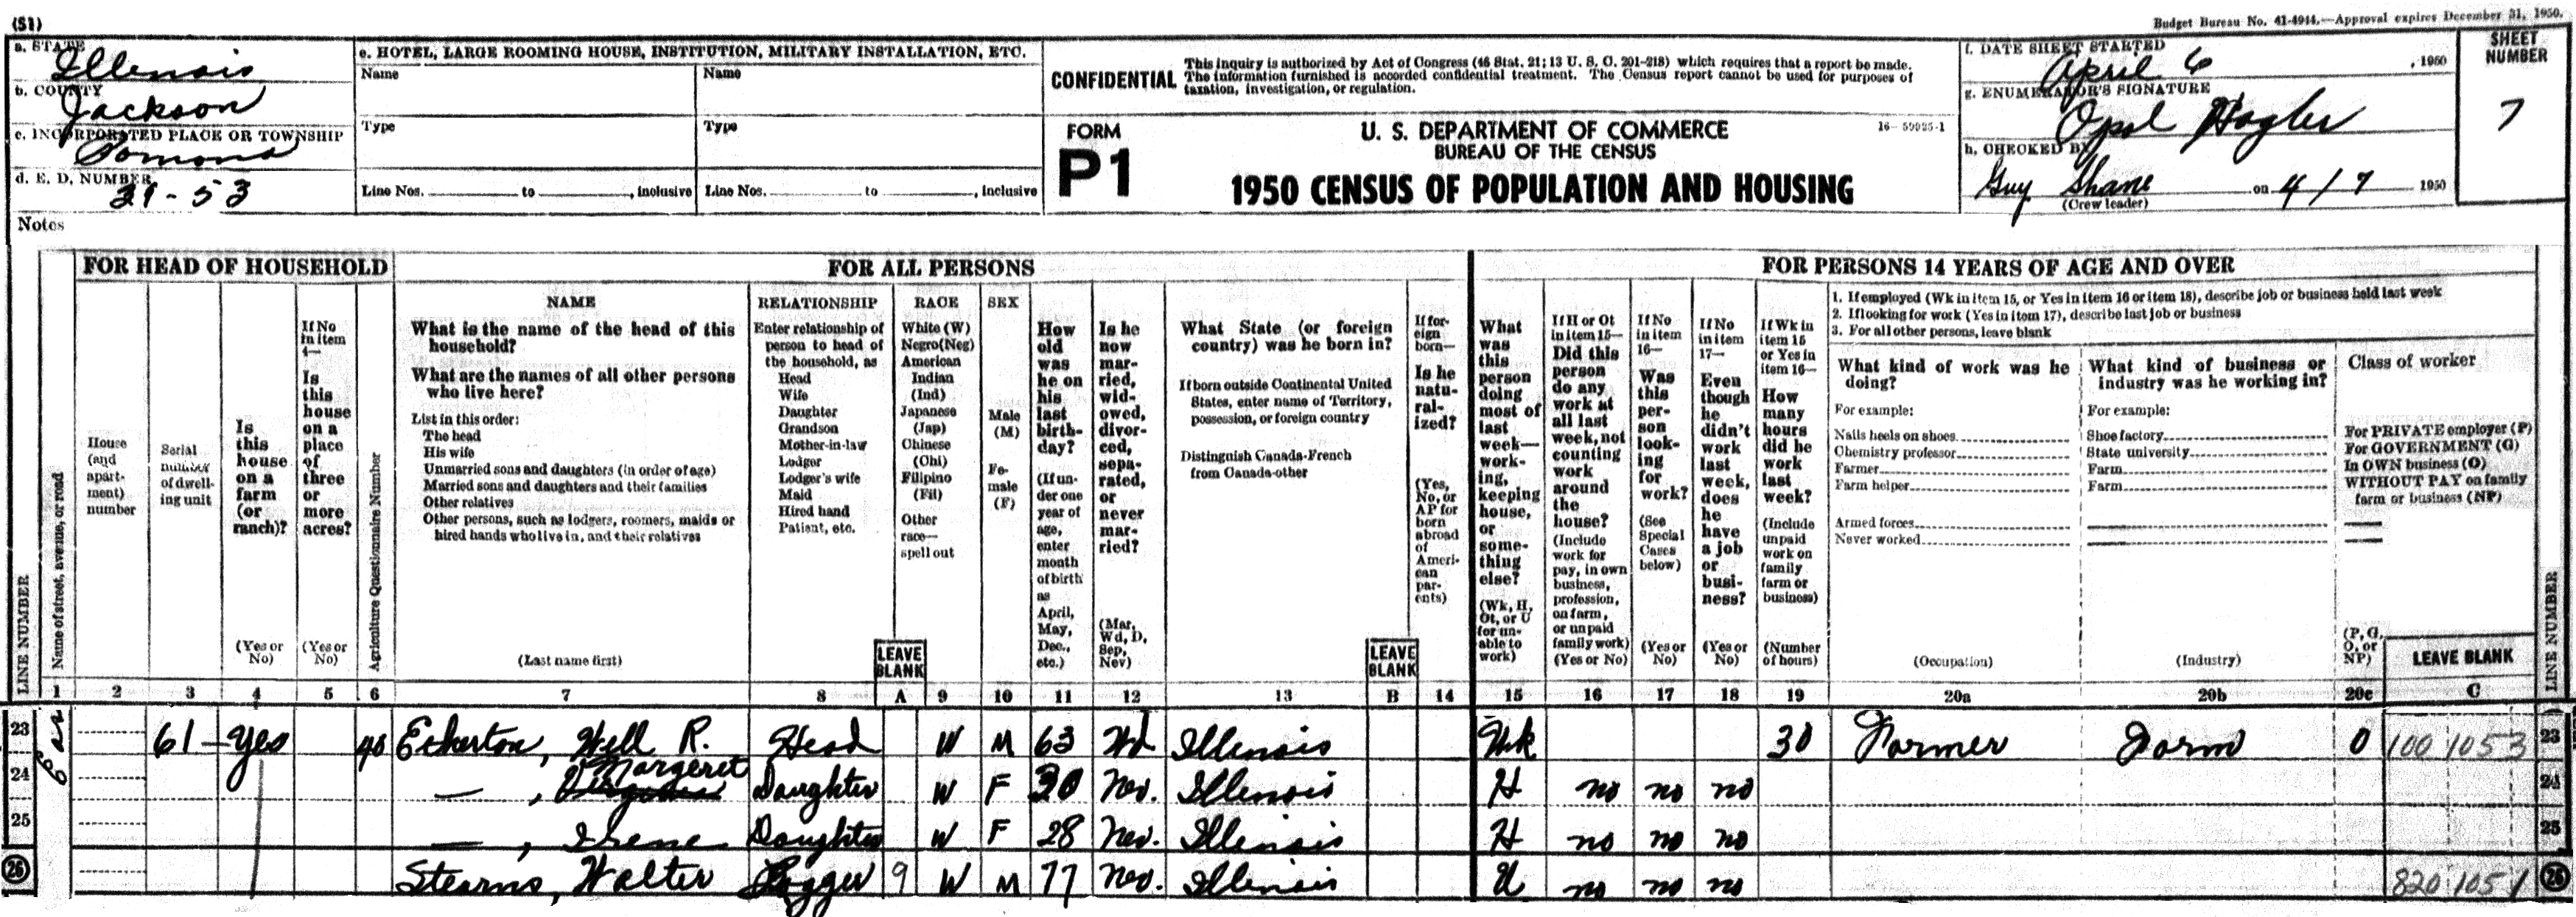 (S1)
Budget Bureau No. 41-4944.—Approval expires December 31, 1950.
a. STATE
Illinois
b. COUNTY
Jackson
c. INCORPORATED PLACE OR TOWNSHIP
Pomona
d. E. D. NUMBER
39-53
e. HOTEL, LARGE ROOMING HOUSE, INSTITUTION, MILITARY INSTALLATION, ETC.
Name Name
Type Type
Line Nos. to , inclusive Line Nos. to , inclusive
CONFIDENTIAL
This inquiry is authorized by Act of Congress (46 Stat. 21; 13 U. S. C. 201-218) which requires that a report be made.
The information furnished is accorded confidential treatment. The Census report cannot be used for purposes of
taxation, investigation, or regulation.
FORM
P1
U. S. DEPARTMENT OF COMMERCE
BUREAU OF THE CENSUS
1950 CENSUS OF POPULATION AND HOUSING
16—59925-1
f. DATE SHEET STARTED
April 6 , 1950
g. ENUMERATOR'S SIGNATURE
Opal Hagler
h. CHECKED BY
Guy Shane on 4/7 1950
(Crew leader)
SHEET
NUMBER
7
Notes
FOR HEAD OF HOUSEHOLD
FOR ALL PERSONS
FOR PERSONS 14 YEARS OF AGE AND OVER
LINE NUMBER
Name of street, avenue, or road
House
(and
apart-
ment)
number
Serial
number
of dwell-
ing unit
Is
this
house
on a
farm
(or
ranch)?
(Yes or
No)
If No
in item
4—
Is
this
house
on a
place
of
three
or
more
acres?
(Yes or
No)
Agriculture Questionnaire Number
NAME
What is the name of the head of this
household?
What are the names of all other persons
who live here?
List in this order:
The head
His wife
Unmarried sons and daughters (in order of age)
Married sons and daughters and their families
Other relatives
Other persons, such as lodgers, roomers, maids or
hired hands who live in, and their relatives
(Last name first)
RELATIONSHIP
Enter relationship of
person to head of
the household, as
Head
Wife
Daughter
Grandson
Mother-in-law
Lodger
Lodger's wife
Maid
Hired hand
Patient, etc.
LEAVE
BLANK
RACE
White (W)
Negro (Neg)
American
Indian
(Ind)
Japanese
(Jap)
Chinese
(Chi)
Filipino
(Fil)
Other
race—
spell out
SEX
Male
(M)
Fe-
male
(F)
How
old
was
he on
his
last
birth-
day?
(If un-
der one
year of
age,
enter
month
of birth
as
April,
May,
Dec.,
etc.)
Is he
now
mar-
ried,
wid-
owed,
divor-
ced,
sepa-
rated,
or
never
mar-
ried?
(Mar,
Wd, D,
Sep,
Nev)
What State (or foreign
country) was he born in?
If born outside Continental United
States, enter name of Territory,
possession, or foreign country
Distinguish Canada-French
from Canada-other
LEAVE
BLANK
If for-
eign
born—
Is he
natu-
ral-
ized?
(Yes,
No, or
AP for
born
abroad
of
Ameri-
can
par-
ents)
What
was
this
person
doing
most of
last
week—
work-
ing,
keeping
house,
or
some-
thing
else?
(Wk, H,
Ot, or U
for un-
able to
work)
If H or Ot
in item 15—
Did this
person
do any
work at
all last
week, not
counting
work
around
the
house?
(Include
work for
pay, in own
business,
profession,
on farm,
or unpaid
family work)
(Yes or No)
If No
in item
16—
Was
this
per-
son
look-
ing
for
work?
(See
Special
Cases
below)
(Yes or
No)
If No
in item
17—
Even
though
he
didn't
work
last
week,
does
he
have
a job
or
busi-
ness?
(Yes or
No)
If Wk in
item 15
or Yes in
item 16—
How
many
hours
did he
work
last
week?
(Include
unpaid
work on
family
farm or
business)
(Number
of hours)
1. If employed (Wk in item 15, or Yes in item 16 or item 18), describe job or business held last week
2. If looking for work (Yes in item 17), describe last job or business
3. For all other persons, leave blank
What kind of work was he
doing?
For example:
Nails heels on shoes
Chemistry professor
Farmer
Farm helper
Armed forces
Never worked
(Occupation)
What kind of business or
industry was he working in?
For example:
Shoe factory
State university
Farm
Farm
(Industry)
Class of worker
For PRIVATE employer (P)
For GOVERNMENT (G)
In OWN business (O)
WITHOUT PAY on family
farm or business (NP)
(P, G,
O, or
NP)
LEAVE BLANK
LINE NUMBER
1 2 3 4 5 6 7 8 A 9 10 11 12 13 B 14 15 16 17 18 19 20a 20b 20c C
23 61 Yes 40 Eckerton, Will R. Head W M 63 Wd Illinois Wk 30 Farmer Farm O 100 105 3 23
24 — , Margeret Daughter W F 30 Nev. Illinois H no no no 24
25 — , Irene Daughter W F 28 Nev. Illinois H no no no 25
26 Stearns, Walter Logger 9 W M 77 Nev. Illinois U no no no 820 105 1 26